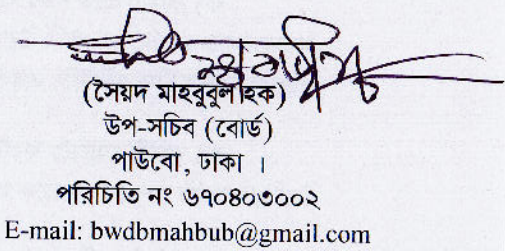 (সৈয়দ মাহবুবুল হক)
উপ-সচিব (বোর্ড)
পাউবো, ঢাকা ।
পরিচিতি নং ৬৭০৪০৩০০২
E-mail: bwdbmahbub@gmail.com